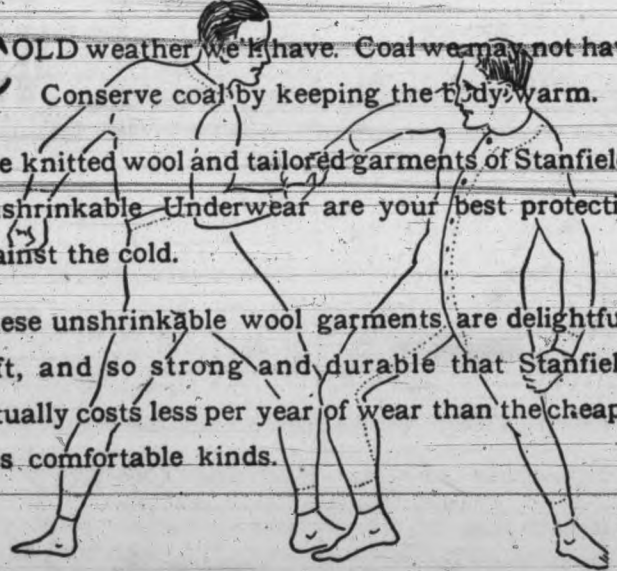 COLD weather we'll have. Coal we may not hav
Conserve coal by keeping the body warm.
e knitted wool and tailored garments of Stanfiel
shrinkable Underwear are your best protecti
ainst the cold.
ese unshrinkable wool garments are delightfu
ft, and so strong and durable that Stanfiel
tually costs less per year of wear than the cheap
s comfortable kinds.